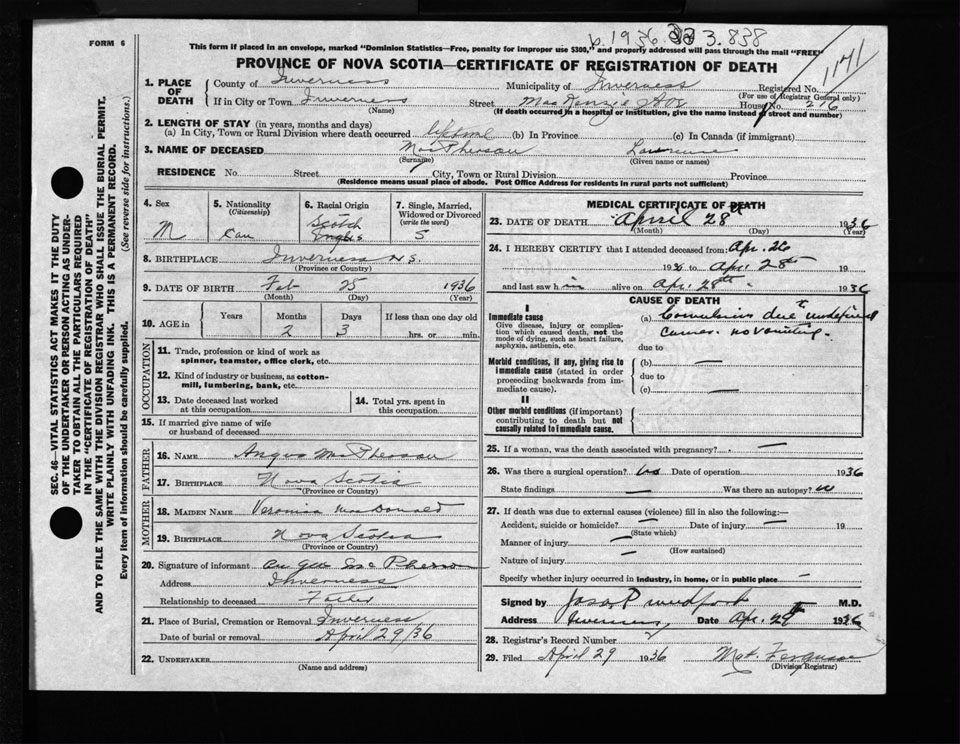 b. 1936 3.838
FORM 6
This form if placed in an envelope, marked "Dominion Statistics—Free, penalty for improper use $300," and properly addressed will pass through the mail "FREE"
PROVINCE OF NOVA SCOTIA—CERTIFICATE OF REGISTRATION OF DEATH
1171
1. PLACE OF DEATH
County of Inverness Municipality of Inverness Registered No.
(For use of Registrar General only)
If in City or Town Inverness Street MacKenzie House No. 216
(Name) (If death occurred in a hospital or institution, give the name instead of street and number)
2. LENGTH OF STAY (in years, months and days)
(a) In City, Town or Rural Division where death occurred lifetime (b) In Province (c) In Canada (if immigrant)
3. NAME OF DECEASED MacPherson Lawrence
(Surname) (Given name or names)
RESIDENCE No. Street City, Town or Rural Division Province
(Residence means usual place of abode. Post Office Address for residents in rural parts not sufficient)
4. Sex M
5. Nationality (Citizenship) Can
6. Racial Origin Scotch
7. Single, Married, Widowed or Divorced (write the word) S
8. BIRTHPLACE Inverness N.S.
(Province or Country)
9. DATE OF BIRTH Feb 25 1936
(Month) (Day) (Year)
10. AGE in Years Months Days If less than one day old
2 3 hrs. or min.
OCCUPATION
11. Trade, profession or kind of work as spinner, teamster, office clerk, etc.
12. Kind of industry or business, as cotton-mill, lumbering, bank, etc.
13. Date deceased last worked at this occupation
14. Total yrs. spent in this occupation
15. If married give name of wife or husband of deceased
FATHER
16. NAME Angus MacPherson
17. BIRTHPLACE Nova Scotia
(Province or Country)
MOTHER
18. MAIDEN NAME Veronica MacDonald
19. BIRTHPLACE Nova Scotia
(Province or Country)
20. Signature of informant Angus McPherson
Address Inverness
Relationship to deceased Father
21. Place of Burial, Cremation or Removal Inverness
Date of burial or removal April 29/36
22. UNDERTAKER
(Name and address)
MEDICAL CERTIFICATE OF DEATH
23. DATE OF DEATH April 28th 1936
(Month) (Day) (Year)
24. I HEREBY CERTIFY that I attended deceased from: Apr. 26
1936 to Apr. 28th 19
and last saw him alive on Apr. 28th 1936
CAUSE OF DEATH
I
Immediate cause
Give disease, injury or complication which caused death, not the mode of dying, such as heart failure, asphyxia, asthenia, etc.
(a) Convulsions due to undefined
cause. no vomiting.
due to
Morbid conditions, if any, giving rise to immediate cause (stated in order proceeding backwards from immediate cause).
(b) —
due to
(c) —
II
Other morbid conditions (if important) contributing to death but not causally related to immediate cause.
25. If a woman, was the death associated with pregnancy? —
26. Was there a surgical operation? No Date of operation 1936
State findings — Was there an autopsy? no
27. If death was due to external causes (violence) fill in also the following:—
Accident, suicide or homicide? — Date of injury — 19
(State which)
Manner of injury —
(How sustained)
Nature of injury —
Specify whether injury occurred in industry, in home, or in public place —
Signed by M.D.
Address Inverness Date Apr. 29th 1936
28. Registrar's Record Number
29. Filed April 29 1936 Ferguson
(Division Registrar)
SEC. 46—VITAL STATISTICS ACT MAKES IT THE DUTY
OF THE UNDERTAKER OR PERSON ACTING AS UNDER-
TAKER TO OBTAIN ALL THE PARTICULARS REQUIRED
IN THE "CERTIFICATE OF REGISTRATION OF DEATH"
AND TO FILE THE SAME WITH THE DIVISION REGISTRAR WHO SHALL ISSUE THE BURIAL PERMIT.
WRITE PLAINLY WITH UNFADING INK. THIS IS A PERMANENT RECORD.
Every item of information should be carefully supplied. (See reverse side for instructions.)